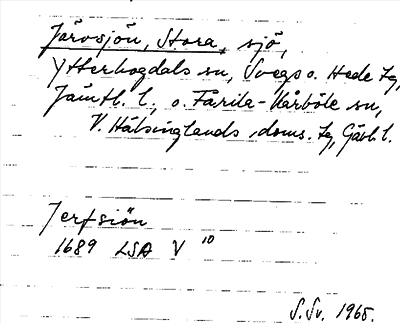 Järvsjön, Stora, sjö,
Ytterhogdals sn, Svegs o. Hede tg,
Jämtl. l., o. Färila-Kårböle sn,
V. Hälsinglands doms. tg, Gävl. l.
Jerfsiön
1689 LSA V 10
S. Sv. 1965.